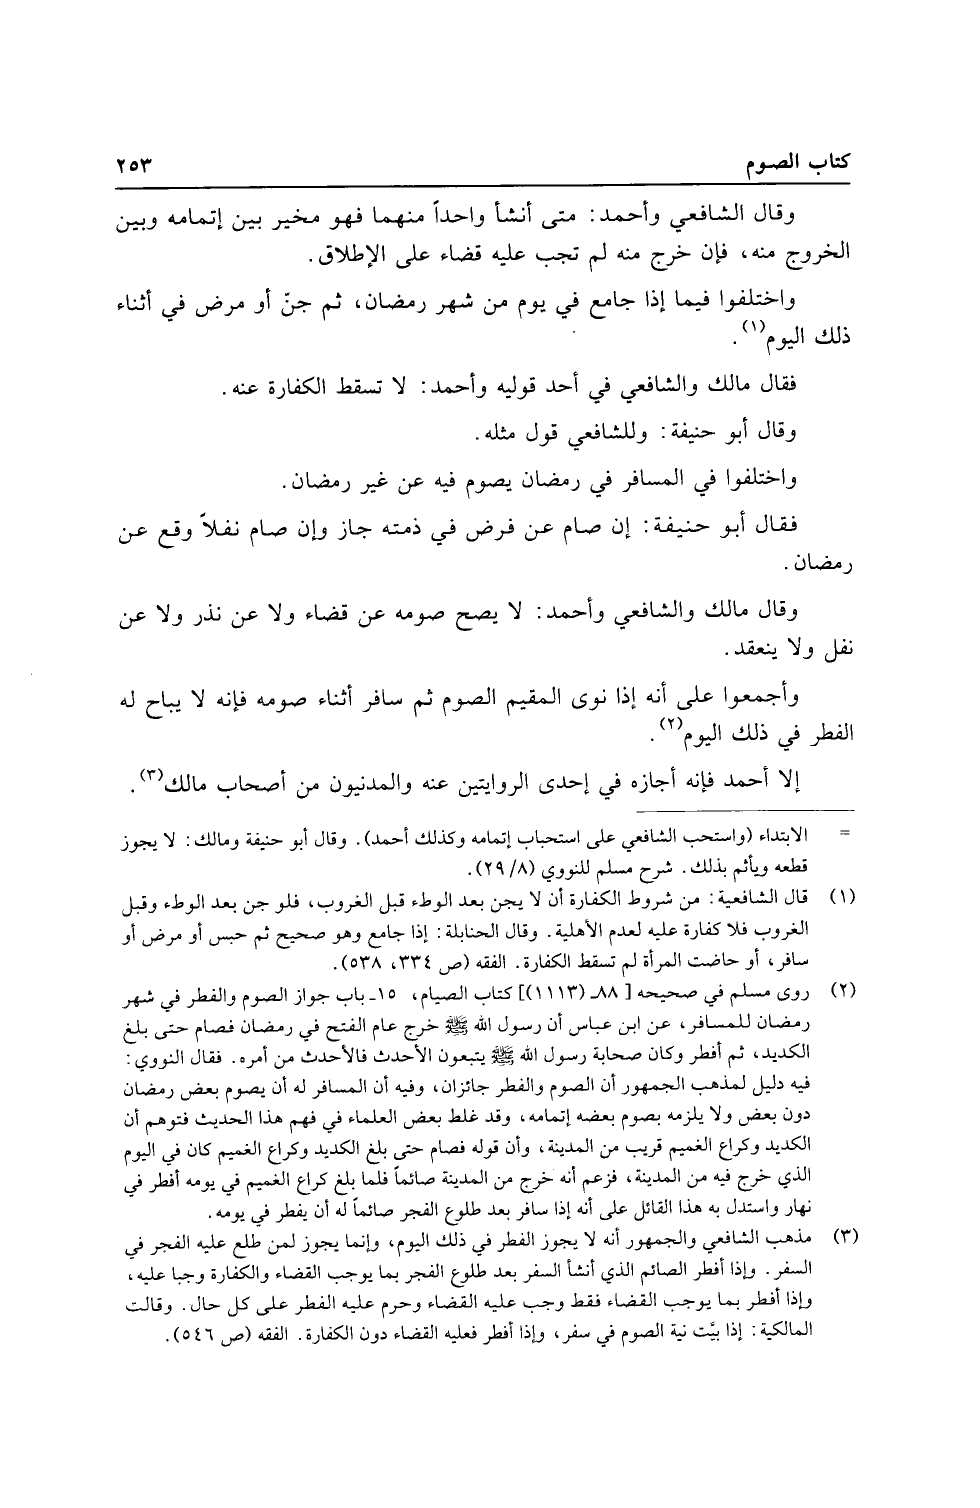 كتاب الصوم ٢٥٣
وقال الشافعي وأحمد: متى أنشأ واحداً منهما فهو مخير بين إتمامه وبين
الخروج منه، فإن خرج منه لم تجب عليه قضاء على الإطلاق.
واختلفوا فيما إذا جامع في يوم من شهر رمضان، ثم جنّ أو مرض في أثناء
ذلك اليوم(١).
فقال مالك والشافعي في أحد قوليه وأحمد: لا تسقط الكفارة عنه.
وقال أبو حنيفة: وللشافعي قول مثله.
واختلفوا في المسافر في رمضان يصوم فيه عن غير رمضان.
فقال أبو حنيفة: إن صام عن فرض في ذمته جاز وإن صام نفلاً وقع عن
رمضان.
وقال مالك والشافعي وأحمد: لا يصح صومه عن قضاء ولا عن نذر ولا عن
نفل ولا ينعقد.
وأجمعوا على أنه إذا نوى المقيم الصوم ثم سافر أثناء صومه فإنه لا يباح له
الفطر في ذلك اليوم(٢).
إلا أحمد فإنه أجازه في إحدى الروايتين عنه والمدنيون من أصحاب مالك(٣).
= الابتداء (واستحب الشافعي على استحباب إتمامه وكذلك أحمد). وقال أبو حنيفة ومالك: لا يجوز
قطعه ويأثم بذلك. شرح مسلم للنووي (٢٩/٨).
(١) قال الشافعية: من شروط الكفارة أن لا يجن بعد الوطء قبل الغروب، فلو جن بعد الوطء وقبل
الغروب فلا كفارة عليه لعدم الأهلية. وقال الحنابلة: إذا جامع وهو صحيح ثم حبس أو مرض أو
سافر، أو حاضت المرأة لم تسقط الكفارة. الفقه (ص ٣٣٤، ٥٣٨).
(٢) روى مسلم في صحيحه [ ٨٨ـ (١١١٣)] كتاب الصيام، ١٥ـ باب جواز الصوم والفطر في شهر
رمضان للمسافر، عن ابن عباس أن رسول الله ﷺ خرج عام الفتح في رمضان فصام حتى بلغ
الكديد، ثم أفطر وكان صحابة رسول الله ﷺ يتبعون الأحدث فالأحدث من أمره. فقال النووي:
فيه دليل لمذهب الجمهور أن الصوم والفطر جائزان، وفيه أن المسافر له أن يصوم بعض رمضان
دون بعض ولا يلزمه بصوم بعضه إتمامه، وقد غلط بعض العلماء في فهم هذا الحديث فتوهم أن
الكديد وكراع الغميم قريب من المدينة، وأن قوله فصام حتى بلغ الكديد وكراع الغميم كان في اليوم
الذي خرج فيه من المدينة، فزعم أنه خرج من المدينة صائماً فلما بلغ كراع الغميم في يومه أفطر في
نهار واستدل به هذا القائل على أنه إذا سافر بعد طلوع الفجر صائماً له أن يفطر في يومه.
(٣) مذهب الشافعي والجمهور أنه لا يجوز الفطر في ذلك اليوم، وإنما يجوز لمن طلع عليه الفجر في
السفر. وإذا أفطر الصائم الذي أنشأ السفر بعد طلوع الفجر بما يوجب القضاء والكفارة وجبا عليه،
وإذا أفطر بما يوجب القضاء فقط وجب عليه القضاء وحرم عليه الفطر على كل حال. وقالت
المالكية: إذا بيَّت نية الصوم في سفر، وإذا أفطر فعليه القضاء دون الكفارة. الفقه (ص ٥٤٦).